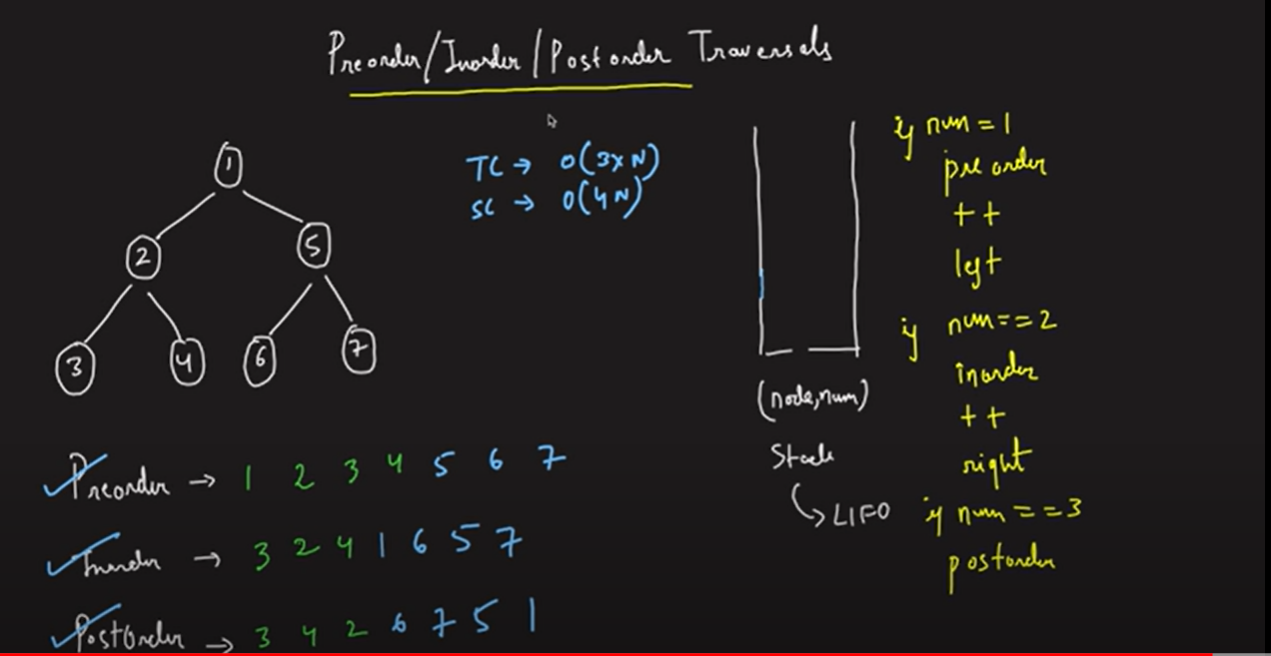 Preorder/Inorder/Postorder Traversals
TC → O(3xN)
SC → O(4N)
1
2
5
3
4
6
7
(node,num)
Stack
LIFO
if num = 1
preorder
++
left
if num == 2
inorder
++
right
if num == 3
postorder
Preorder → 1 2 3 4 5 6 7
Inorder → 3 2 4 1 6 5 7
PostOrder → 3 4 2 6 7 5 1